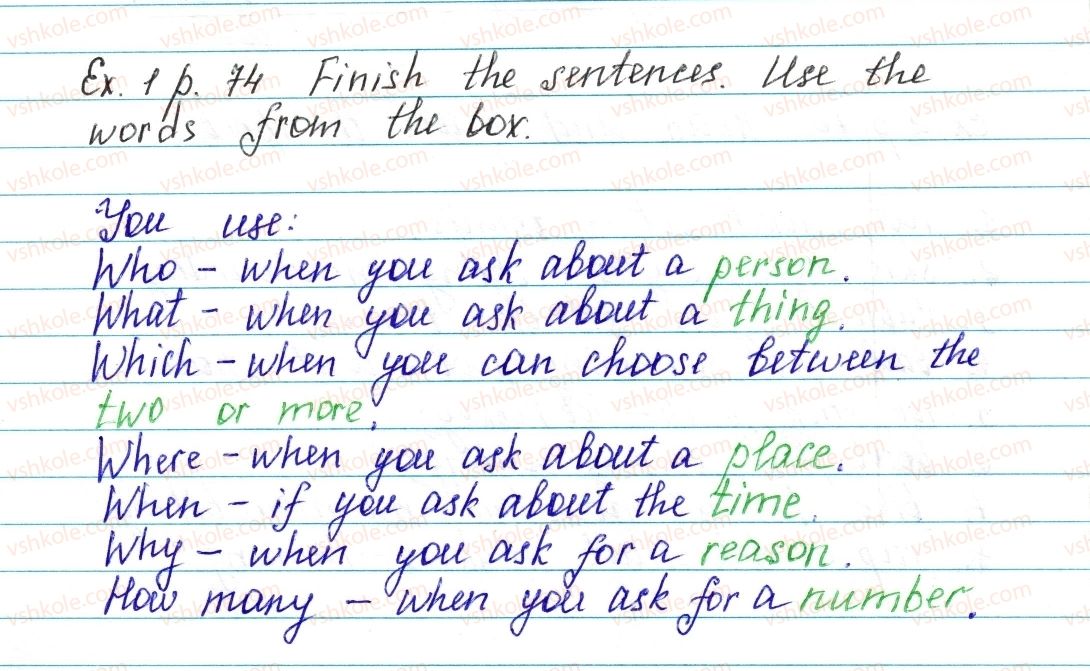 Ex. 1 p. 74 Finish the sentences. Use the
words from the box.
You use:
Who - when you ask about a person.
What - when you ask about a thing.
Which - when you can choose between the
two or more.
Where - when you ask about a place.
When - if you ask about the time.
Why - when you ask for a reason.
How many - when you ask for a number.